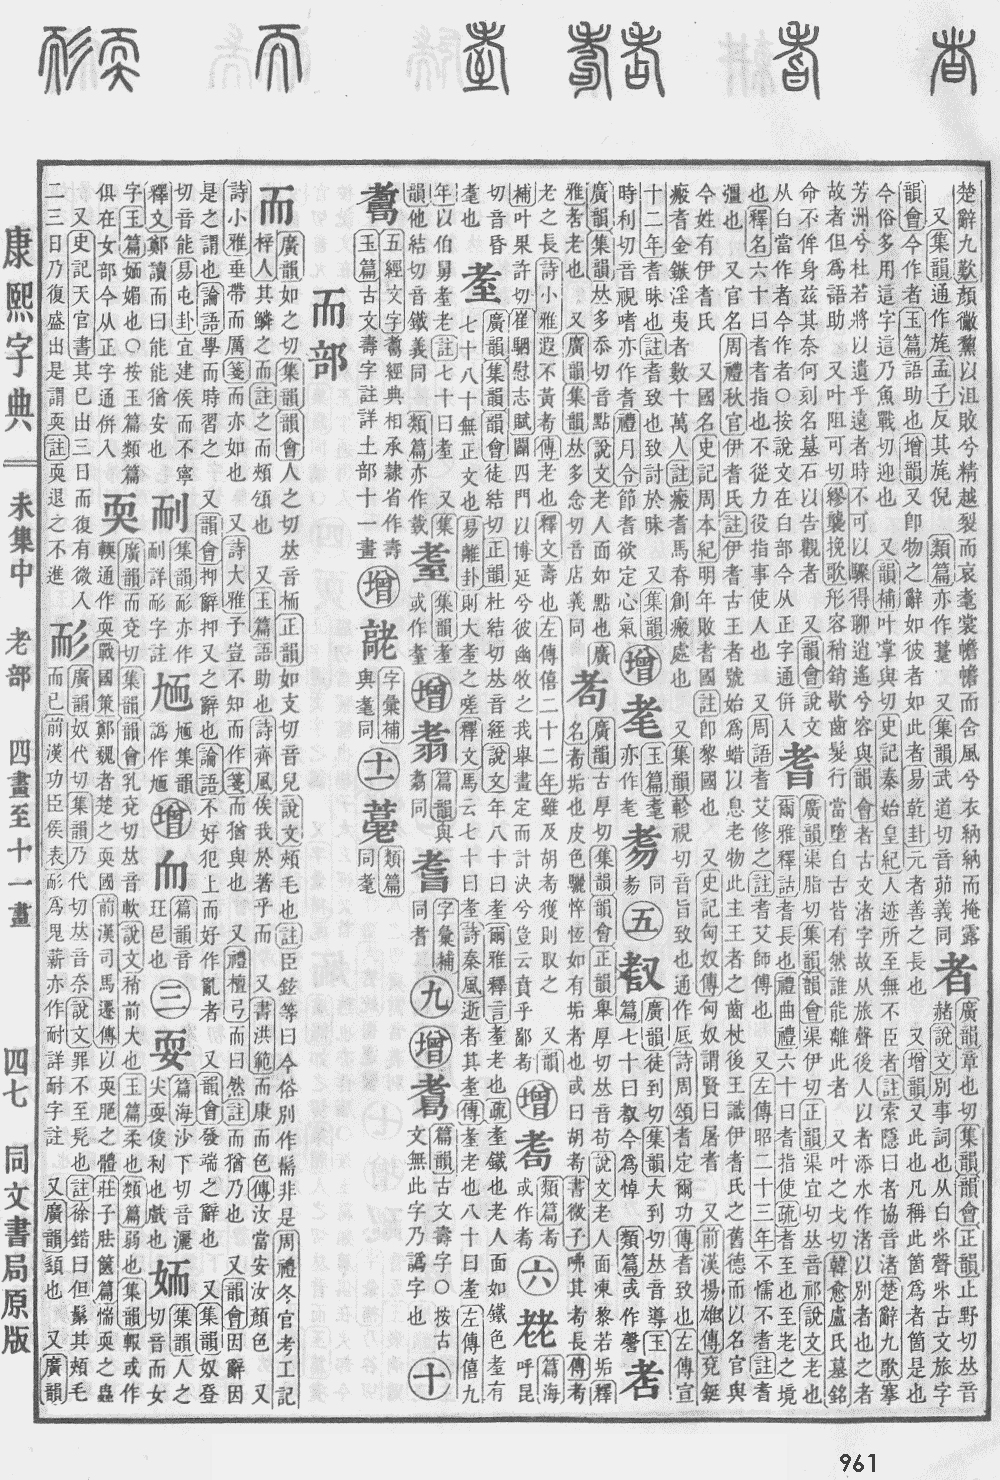 楚辭九歎顏黴黧以沮敗兮精越裂而哀耄裳襜襜而舍風兮衣納納而掩露 者 廣韻章也切集韻韻會正韻止野切𠀤音
又集韻通作旄孟子反其旄倪 類篇亦作 又集韻武道切音茆義同 赭說文別事詞也从白𣥐聲𣥐古文旅字
韻會今作者玉篇語助也增韻又卽物之辭如彼者如此者易乾卦元者善之長也 又增韻又此也凡稱此箇爲者箇是也
今俗多用這字這乃魚戰切迎也 又韻補叶掌與切史記秦始皇紀人迹所至無不臣者註索隱曰者協音渚楚辭九歌搴
芳洲兮杜若將以遺乎遠者時不可以驟得聊逍遙兮容與韻會者古文渚字故从旅聲後人以者添水作渚以別者也之者
故者但爲語助 又叶阻可切繆襲挽歌形容稍銷歇齒髮行當墮自古皆有然誰能離此者 又叶之戈切韓愈盧氏墓銘
命不侔身茲其奈何刻名墓石以告觀者 又韻會說文 耆 廣韻渠脂切集韻韻會渠伊切正韻渠宜切𠀤音祁說文老也
从白當作者今作者〇按說文在白部今从正字通倂入 爾雅釋詁耆長也禮曲禮六十曰耆指使疏耆至也至老之境
也釋名六十曰耆耆指也不從力役指事使人也 又周語耆艾修之註耆艾師傅也 又左傳昭二十三年不懦不耆註耆
彊也 又官名周禮秋官伊耆氏註伊耆古王者號始爲蜡以息老物此主王者之齒杖後王識伊耆氏之舊德而以名官與
今姓有伊耆氏 又國名史記周本紀明年敗耆國註卽黎國也 又史記匈奴傳匈奴謂賢曰屠耆 又前漢揚雄傳兗鋋
瘢耆金鏃淫夷者數十萬人註瘢耆馬脊創瘢處也 又集韻軫視切音旨致也通作厎詩周頌耆定爾功傳耆致也左傳宣
十二年耆昧也註耆致也致討於昧 又集韻 增 玉篇耄 同 五 廣韻徒到切集韻大到切𠀤音導玉
時利切音視嗜亦作耆禮月令節耆欲定心氣 亦作 篇七十曰 今爲悼 類篇或作
廣韻集韻𠀤多忝切音點說文老人面如點也廣 耇 廣韻古厚切集韻韻會正韻舉厚切𠀤音苟說文老人面凍黎若垢釋
雅耆老也 又廣韻集韻𠀤多念切音店義同 名耇垢也皮色驪悴恆如有垢者也或曰胡耇書微子咈其耇長傳耇
老之長長詩小雅遐不黃耇傳老也釋文壽也左傳僖二十二年雖及胡耇獲則取之 又韻 增 類篇耇 六 篇海
補叶果許切崔駰慰志賦闢四門以博延兮彼幽牧之我舉畫定而計決兮豈云賁乎鄙耇 或作 呼昆
切音昏 耊 廣韻集韻韻會徒結切正韻杜結切𠀤音絰說文年八十曰耊爾雅釋言耋老也疏耋鐵也老人面如鐵色耋有
耄也 七十八十無正文也易離卦則大耋之嗟釋文馬云七十曰耋詩秦風逝者其耋傳耋老也八十曰耋左傳僖九
年以伯舅耋老註七十曰耋 又集 耋 集韻耊 增 篇韻與 字彙補 九 增 篇韻古文壽字〇按古 十
韻他結切音鐵義同 類篇亦作 或作耋 同 同耆 文無此字乃譌字也
五經文字 經典相承隸省作壽 增 字彙補 十一 類篇
玉篇古文壽字註詳土部十一畫 與耄同 同耄
而部
而 廣韻如之切集韻韻會人之切𠀤音栭正韻如支切音兒說文頰毛也註臣鉉等曰今俗別作髵非是周禮冬官考工記
梓人其鱗之而註之而頰頌也 又玉篇語助也詩齊風俟我於著乎而 又書洪範而康而色傳汝當安汝顏色 又
詩小雅垂帶而厲箋而亦如也 又詩大雅子豈不知而作箋而猶與也 又禮檀弓而曰然註而猶乃也 又韻會因辭因
是之謂也論語學而時習之 又韻會抑辭抑又之辭也論語不好犯上而好作亂者 又韻會發端之辭也 又集韻奴登
切音能易屯卦宜建侯而不寧 耐 集韻耏亦作 耐詳耏字註 增 篇韻音 三 耍 篇海沙下切音灑 集韻人之
釋文鄭讀而曰能能猶安也 譌作 汪邑也 尖耍俊利也戲也 切音而女
字玉篇 媚也〇按玉篇類篇 耎 廣韻而兗切集韻韻會乳兗切𠀤音軟說文稍前大也玉篇柔也類篇弱也集韻輭或作
俱在女部今从正字通倂入 輭通作耎戰國策鄭魏者楚之耎國前漢司馬遷傳以耎脆之體莊子胠篋篇惴耎之蟲
又史記天官書其已出三日而復有微入 耏 廣韻奴代切集韻乃代切𠀤音奈說文罪不至髡也註徐鍇曰但鬄其頰毛
二三日乃復盛出是謂耎註耎退之不進 而已前漢功臣侯表耏爲鬼薪亦作耐詳耐字註 又廣韻頰也 又廣韻
康熙字典
未集中 老部 四畫至十一畫
四七 同文書局原版
961